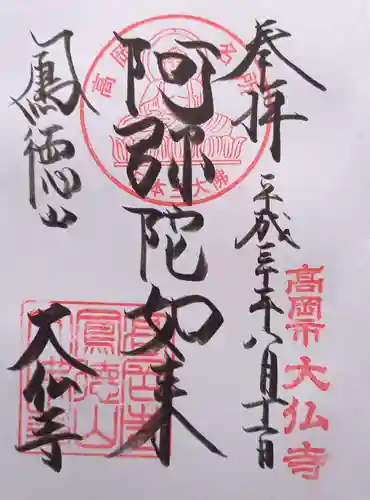 奉拝
平成三十年八月十一日
高岡市 大仏寺
高岡名所
日本三大佛
阿弥陀如来
鳳徳山
大仏寺